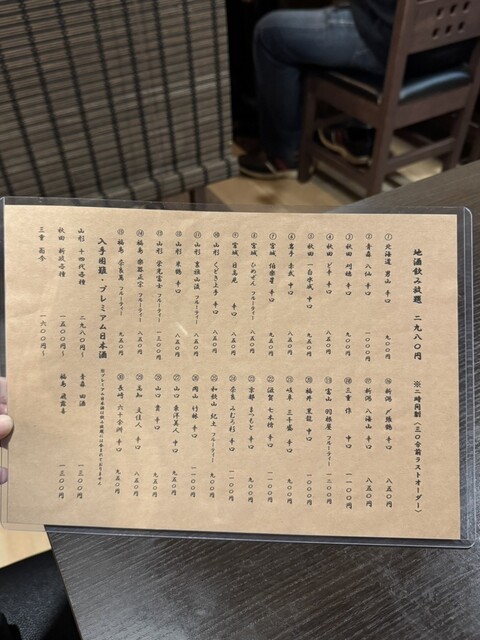 地酒飲み放題 二九八〇円 ※二時間制（三〇分前ラストオーダー）
① 北海道 男山 辛口 九〇〇円
② 青森 八仙 辛口 八五〇円
③ 秋田 刈穂 辛口 九〇〇円
④ 秋田 ど辛 辛口 八五〇円
③ 秋田 一白水成 中口 八五〇円
⑥ 岩手 赤武 中口 八五〇円
⑦ 宮城 伯楽星 辛口 八五〇円
⑧ 宮城 ひめぜん フルーティー 八五〇円
⑨ 宮城 日高見 辛口 八五〇円
⑩ 山形 くどき上手 辛口 八五〇円
⑪ 山形 裏福山政 フルーティー 八五〇円
⑫ 山形 米鶴 辛口 八五〇円
⑬ 山形 栄光冨士 フルーティー 一三〇〇円
⑭ 福島 楽器正宗 フルーティー 八五〇円
⑮ 福島 奈良萬 フルーティー 九五〇円
⑯ 新潟 〆張鶴 辛口 八五〇円
⑰ 新潟 八海山 辛口 八五〇円
⑱ 三重 作 中口 一一〇〇円
⑲ 富山 羽根屋 フルーティー 一二〇〇円
⑳ 福井 黒龍 中口 九〇〇円
㉑ 岐阜 三千盛 辛口 九〇〇円
㉒ 滋賀 七本槍 中口 一一〇〇円
㉓ 京都 まつもと 中口 九〇〇円
㉔ 奈良 みむろ杉 辛口 一一〇〇円
㉕ 和歌山 紀土 フルーティー 九〇〇円
㉖ 岡山 竹林 辛口 一一〇〇円
㉗ 山口 東洋美人 中口 九五〇円
㉘ 山口 貴 辛口 九五〇円
㉙ 高知 文佳人 辛口 八五〇円
㉚ 長崎 六十余洲 辛口 九五〇円
入手困難・プレミアム日本酒
山形 十四代各種 二九八〇〜
秋田 新政各種 一五〇〇円〜
三重 而今 一六〇〇円〜
青森 田酒 一三〇〇円
福島 飛露喜 一三〇〇円